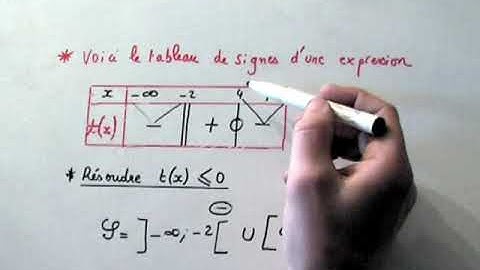 * Voici le tableau de signes d'une expression
x -∞ -2 4
t(x) - || + 0 -
* Résoudre t(x) ≤ 0
-
S = ]-∞; -2[ ∪ [